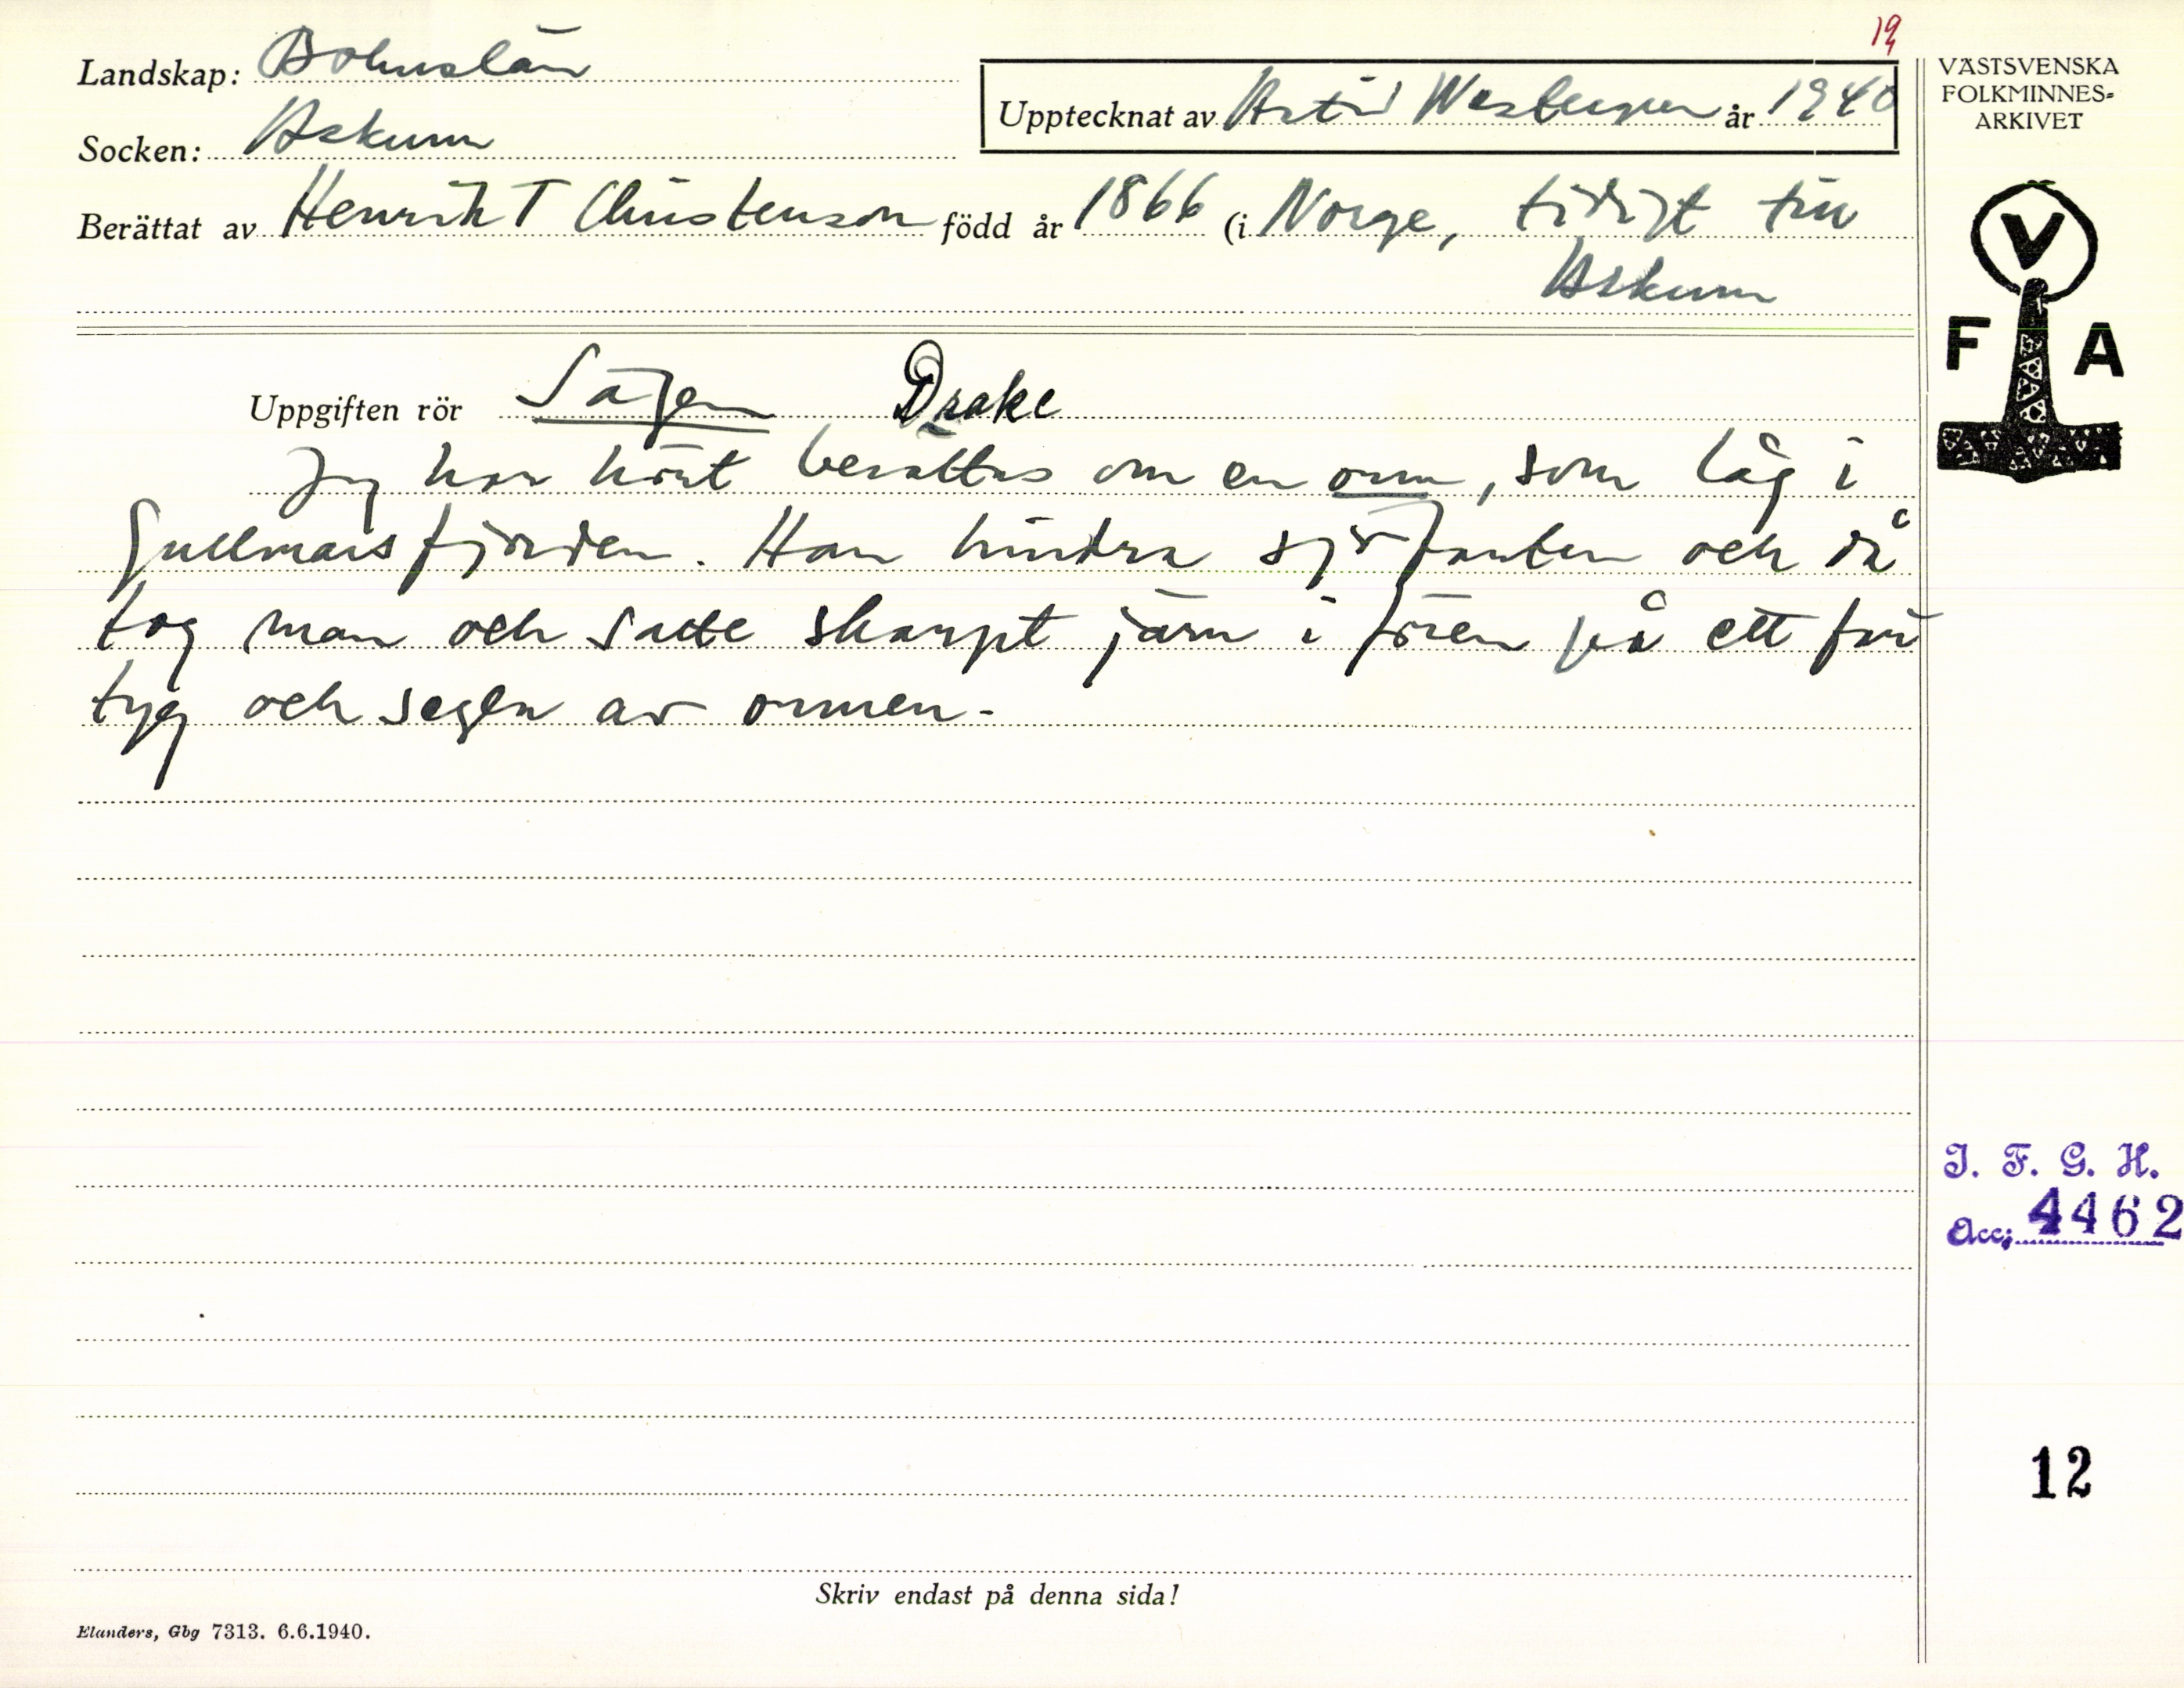 19
Landskap: Bohuslän
Upptecknat av Astrid Westergren år 1940
Socken: Askum
Berättat av Henrik T Christenson född år 1866 (i Norge, tidigt till
Askum
VÄSTSVENSKA
FOLKMINNES-
ARKIVET
V
F A
Uppgiften rör Sägen Drake
Jag har hört berättas om en orm, som låg i
Gullmarsfjorden. Han hindra sjöfarten och då
tog man och satte skarpt järn i fören på ett far
tyg och segla av ormen.
I. F. G. H.
Acc: 4462
12
Skriv endast på denna sida!
Elanders, Gbg 7313. 6.6.1940.